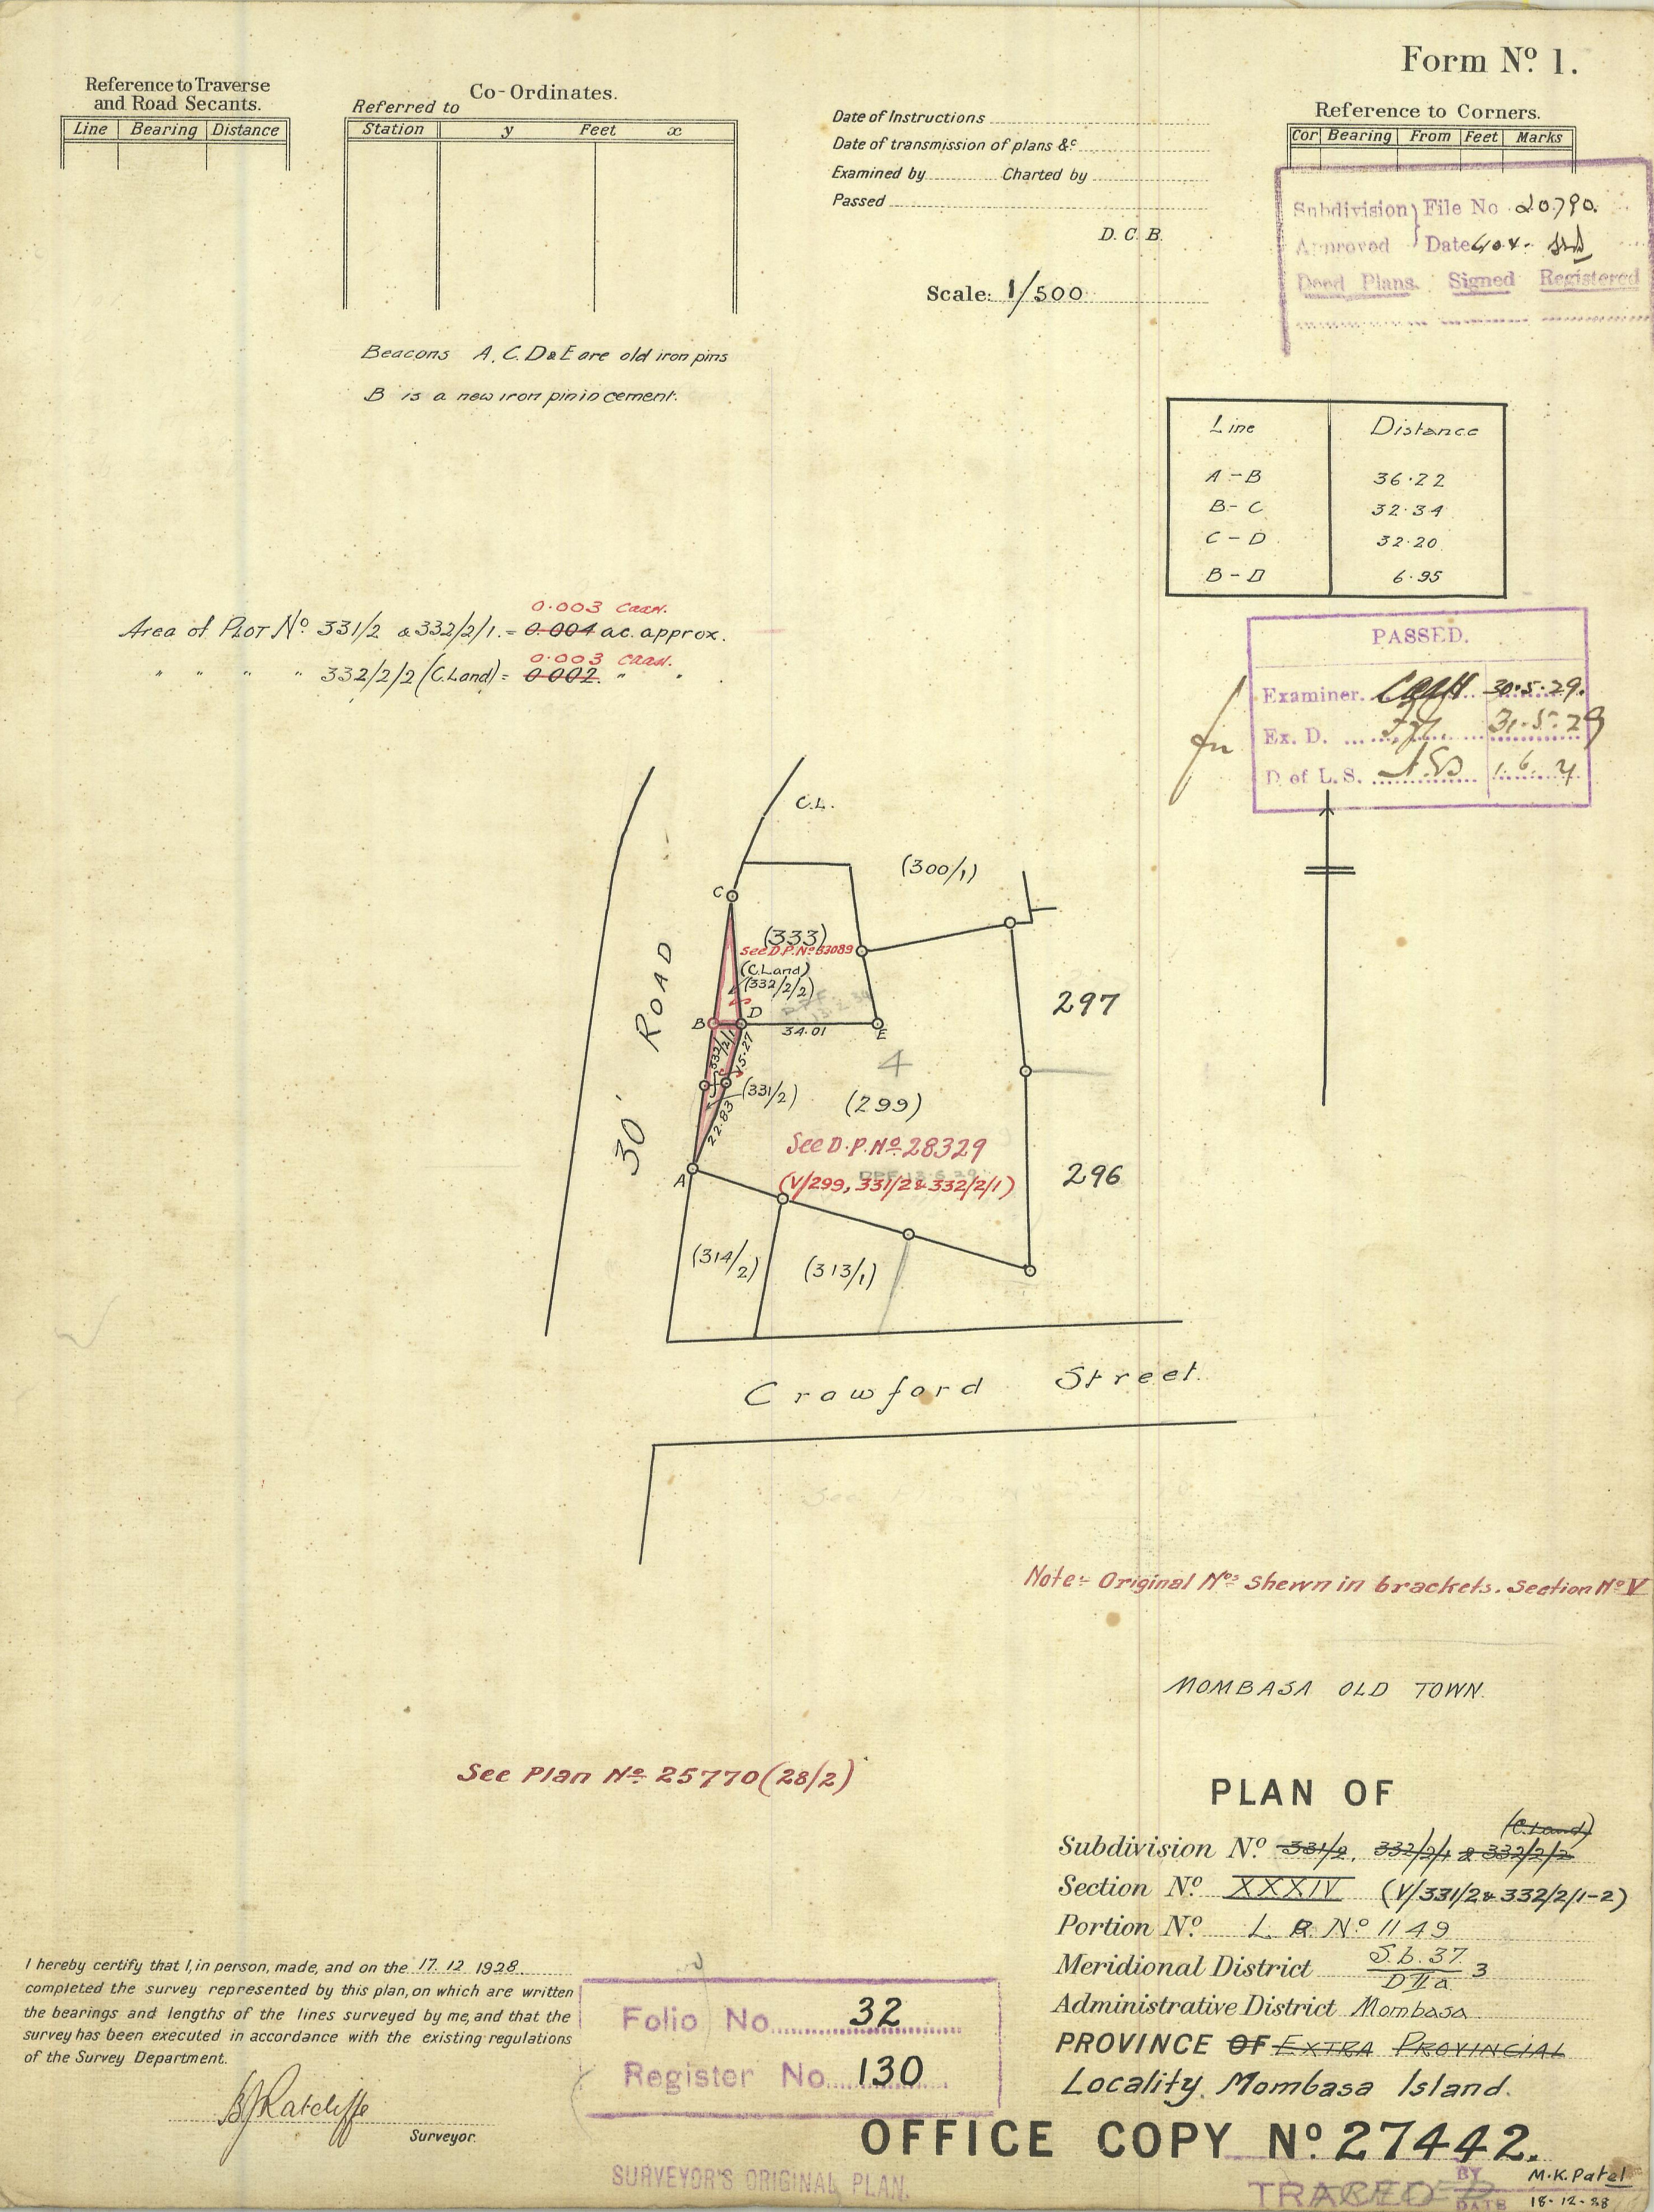 Form No. 1.
Reference to Traverse
and Road Secants.
Line Bearing Distance
Co-Ordinates.
Referred to
Station y Feet x
Date of Instructions
Date of transmission of plans &c
Examined by Charted by
Passed
D. C. B.
Scale: 1/500
Reference to Corners.
Cor Bearing From Feet Marks
Subdivision File No 20790.
Approved Date
Deed Plans. Signed Registered
Beacons A, C, D & E are old iron pins
B is a new iron pin in cement.
Line Distance
A-B 36.22
B-C 32.34
C-D 32.20
B-D 6.95
0.003
Area of PLOT No. 331/2 & 332/2/1. = 0.004 ac. approx.
0.003
" " " " 332/2/2 (C.Land) = 0.002. " "
PASSED.
Examiner. 30.5.29.
Ex. D. 31-5-29
D of L.S. 1.6.
for
C.L.
(300/1)
C
(333)
See D.P. No. 53089
(C.Land)
(332/2/2)
B
D
34.01
E
297
30' ROAD
332/2/1
15.27
4
(331/2)
22.83
(299)
See D.P. No. 28329
(V/299, 331/2 & 332/2/1)
A
296
(314/2)
(313/1)
Crawford Street.
Note:- Original Nos shewn in brackets. Section No V
MOMBASA OLD TOWN.
See Plan No. 25770 (28/2)
PLAN OF
(C.Land)
Subdivision No. 331/2, 332/2/1 & 332/2/2
Section No. XXXIV (V/331/2 & 332/2/1-2)
Portion No. L.R. No 1149
Meridional District S.b. 37. / D II a 3
Administrative District Mombasa
PROVINCE OF EXTRA PROVINCIAL
Locality. Mombasa Island.
I hereby certify that I, in person, made, and on the 17. 12 1928
completed the survey represented by this plan, on which are written
the bearings and lengths of the lines surveyed by me, and that the
survey has been executed in accordance with the existing regulations
of the Survey Department.
Ratcliffe
Surveyor.
Folio No. 32
Register No. 130
OFFICE COPY No. 27442.
SURVEYOR'S ORIGINAL PLAN.
TRACED BY M.K. Patel
DATE 18-12-28